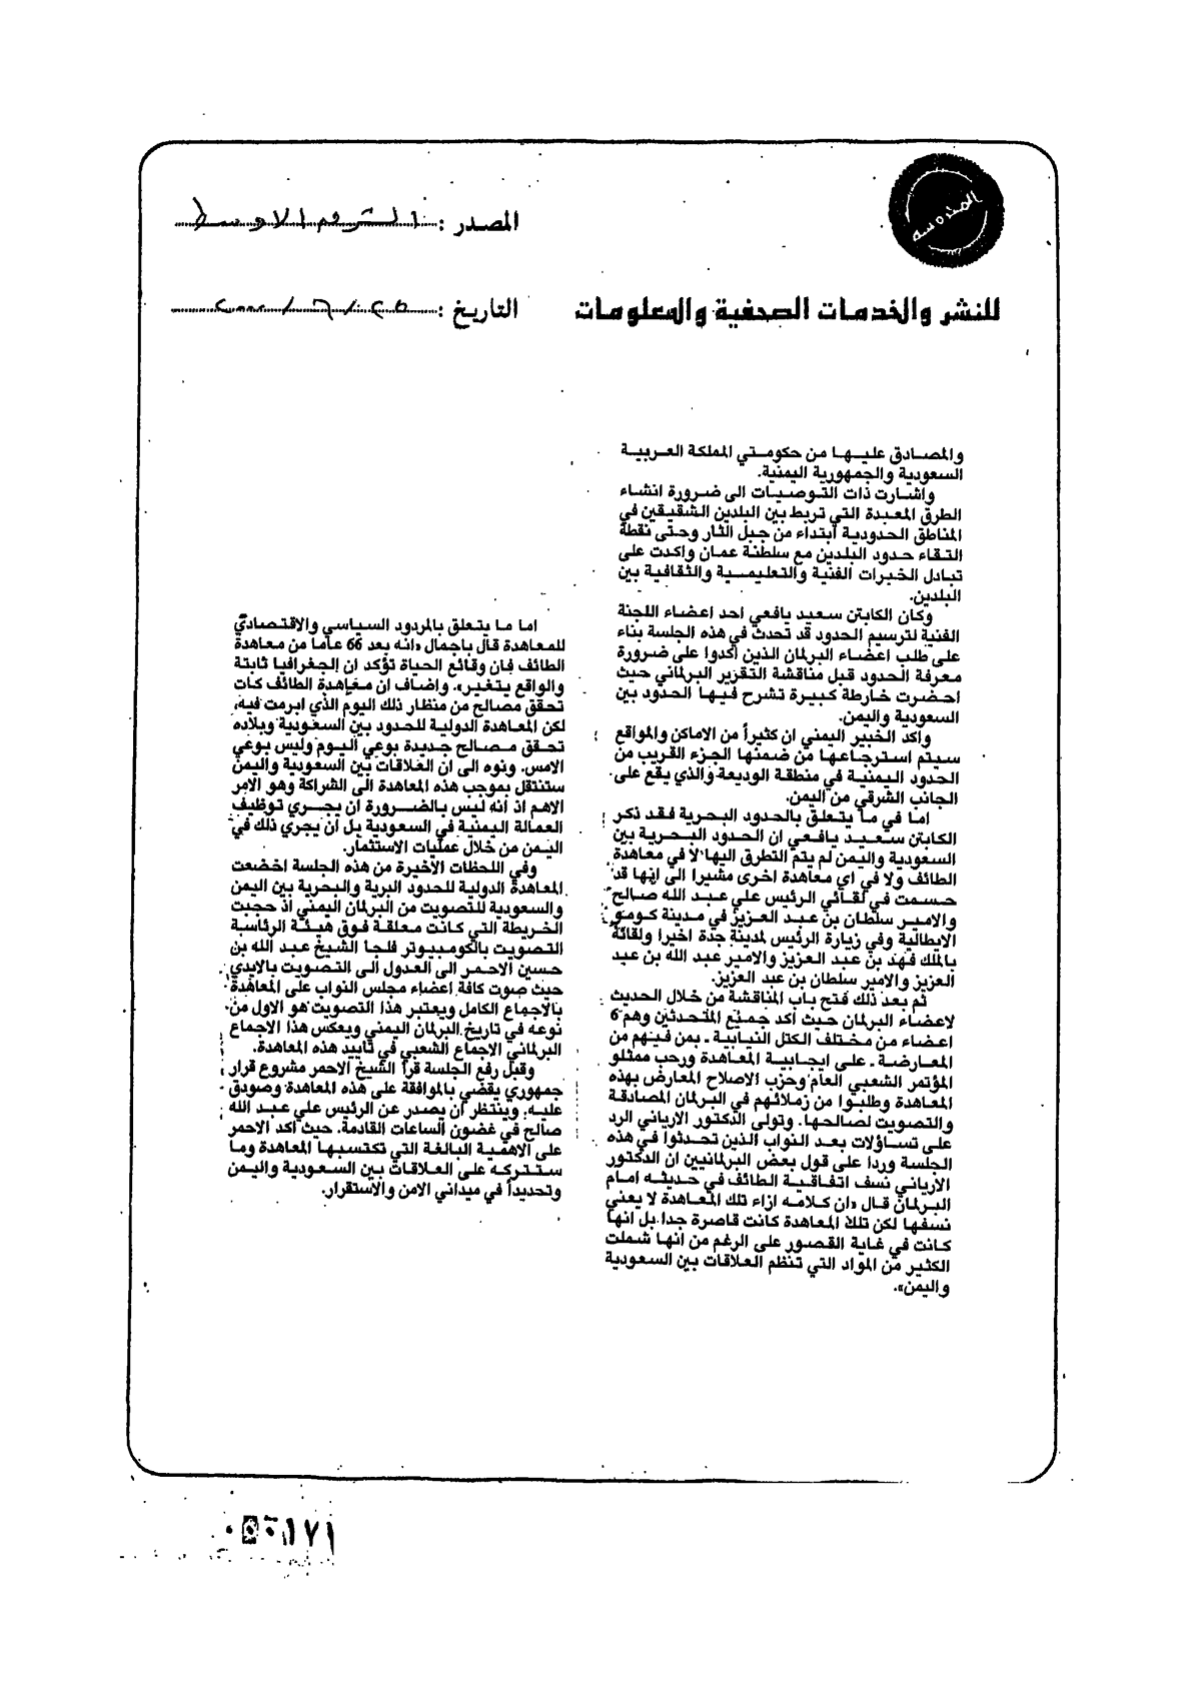 المصدر : الشرق الاوسط
للنشر والخدمات الصحفية والمعلومات
التاريخ : ٢٥ / ٦ / ٢٠٠٠
والمصادق عليها من حكومتي المملكة العربية
السعودية والجمهورية اليمنية.
واشارت ذات التوصيات الى ضرورة انشاء
الطرق المعبدة التي تربط بين البلدين الشقيقين في
المناطق الحدودية ابتداء من جبل الثار وحتى نقطة
التقاء حدود البلدين مع سلطنة عمان واكدت على
تبادل الخبرات الفنية والتعليمية والثقافية بين
البلدين.
وكان الكابتن سعيد يافعي احد اعضاء اللجنة
الفنية لترسيم الحدود قد تحدث في هذه الجلسة بناء
على طلب اعضاء البرلمان الذين اكدوا على ضرورة
معرفة الحدود قبل مناقشة التقرير البرلماني حيث
احضرت خارطة كبيرة تشرح فيها الحدود بين
السعودية واليمن.
واكد الخبير اليمني ان كثيراً من الاماكن والمواقع
سيتم استرجاعها من ضمنها الجزء القريب من
الحدود اليمنية في منطقة الوديعة والذي يقع على
الجانب الشرقي من اليمن.
اما في ما يتعلق بالحدود البحرية فقد ذكر
الكابتن سعيد يافعي ان الحدود البحرية بين
السعودية واليمن لم يتم التطرق اليها لا في معاهدة
الطائف ولا في اي معاهدة اخرى مشيرا الى انها قد
حسمت في لقائي الرئيس علي عبد الله صالح
والامير سلطان بن عبد العزيز في مدينة كومو
الايطالية وفي زيارة الرئيس لمدينة جدة اخيرا ولقائه
بالملك فهد بن عبد العزيز والامير عبد الله بن عبد
العزيز والامير سلطان بن عبد العزيز.
ثم بعد ذلك فتح باب المناقشة من خلال الحديث
لاعضاء البرلمان حيث اكد جميع المتحدثين وهم 6
اعضاء من مختلف الكتل النيابية ـ بمن فيهم من
المعارضة ـ على ايجابية المعاهدة ورحب ممثلو
المؤتمر الشعبي العام وحزب الاصلاح المعارض بهذه
المعاهدة وطلبوا من زملائهم في البرلمان المصادقة
والتصويت لصالحها. وتولى الدكتور الارياني الرد
على تساؤلات بعد النواب الذين تحدثوا في هذه
الجلسة وردا على قول بعض البرلمانيين ان الدكتور
الارياني نسف اتفاقية الطائف في حديثه امام
البرلمان قال «ان كلامه ازاء تلك المعاهدة لا يعني
نسفها لكن تلك المعاهدة كانت قاصرة جدا بل انها
كانت في غاية القصور على الرغم من انها شملت
الكثير من المواد التي تنظم العلاقات بين السعودية
واليمن».
اما ما يتعلق بالمردود السياسي والاقتصادي
للمعاهدة قال باجمال «انه بعد 66 عاما من معاهدة
الطائف فان وقائع الحياة تؤكد ان الجغرافيا ثابتة
والواقع يتغير». واضاف ان معاهدة الطائف كانت
تحقق مصالح من منظار ذلك اليوم الذي ابرمت فيه،
لكن المعاهدة الدولية للحدود بين السعودية وبلاده
تحقق مصالح جديدة بوعي اليوم وليس بوعي
الامس. ونوه الى ان العلاقات بين السعودية واليمن
ستنتقل بموجب هذه المعاهدة الى الشراكة وهو الامر
الاهم اذ انه ليس بالضرورة ان يجري توظيف
العمالة اليمنية في السعودية بل ان يجري ذلك في
اليمن من خلال عمليات الاستثمار.
وفي اللحظات الاخيرة من هذه الجلسة اخضعت
المعاهدة الدولية للحدود البرية والبحرية بين اليمن
والسعودية للتصويت من البرلمان اليمني اذ حجبت
الخريطة التي كانت معلقة فوق هيئة الرئاسة
التصويت بالكومبيوتر فلجا الشيخ عبد الله بن
حسين الاحمر الى العدول الى التصويت بالايدي
حيث صوت كافة اعضاء مجلس النواب على المعاهدة
بالاجماع الكامل ويعتبر هذا التصويت هو الاول من
نوعه في تاريخ البرلمان اليمني ويعكس هذا الاجماع
البرلماني الاجماع الشعبي في تاييد هذه المعاهدة.
وقبل رفع الجلسة قرأ الشيخ الاحمر مشروع قرار
جمهوري يقضي بالموافقة على هذه المعاهدة وصودق
عليه. وينتظر ان يصدر عن الرئيس علي عبد الله
صالح في غضون الساعات القادمة. حيث اكد الاحمر
على الاهمية البالغة التي تكتسبها المعاهدة وما
ستتركه على العلاقات بين السعودية واليمن
وتحديداً في ميداني الامن والاستقرار.